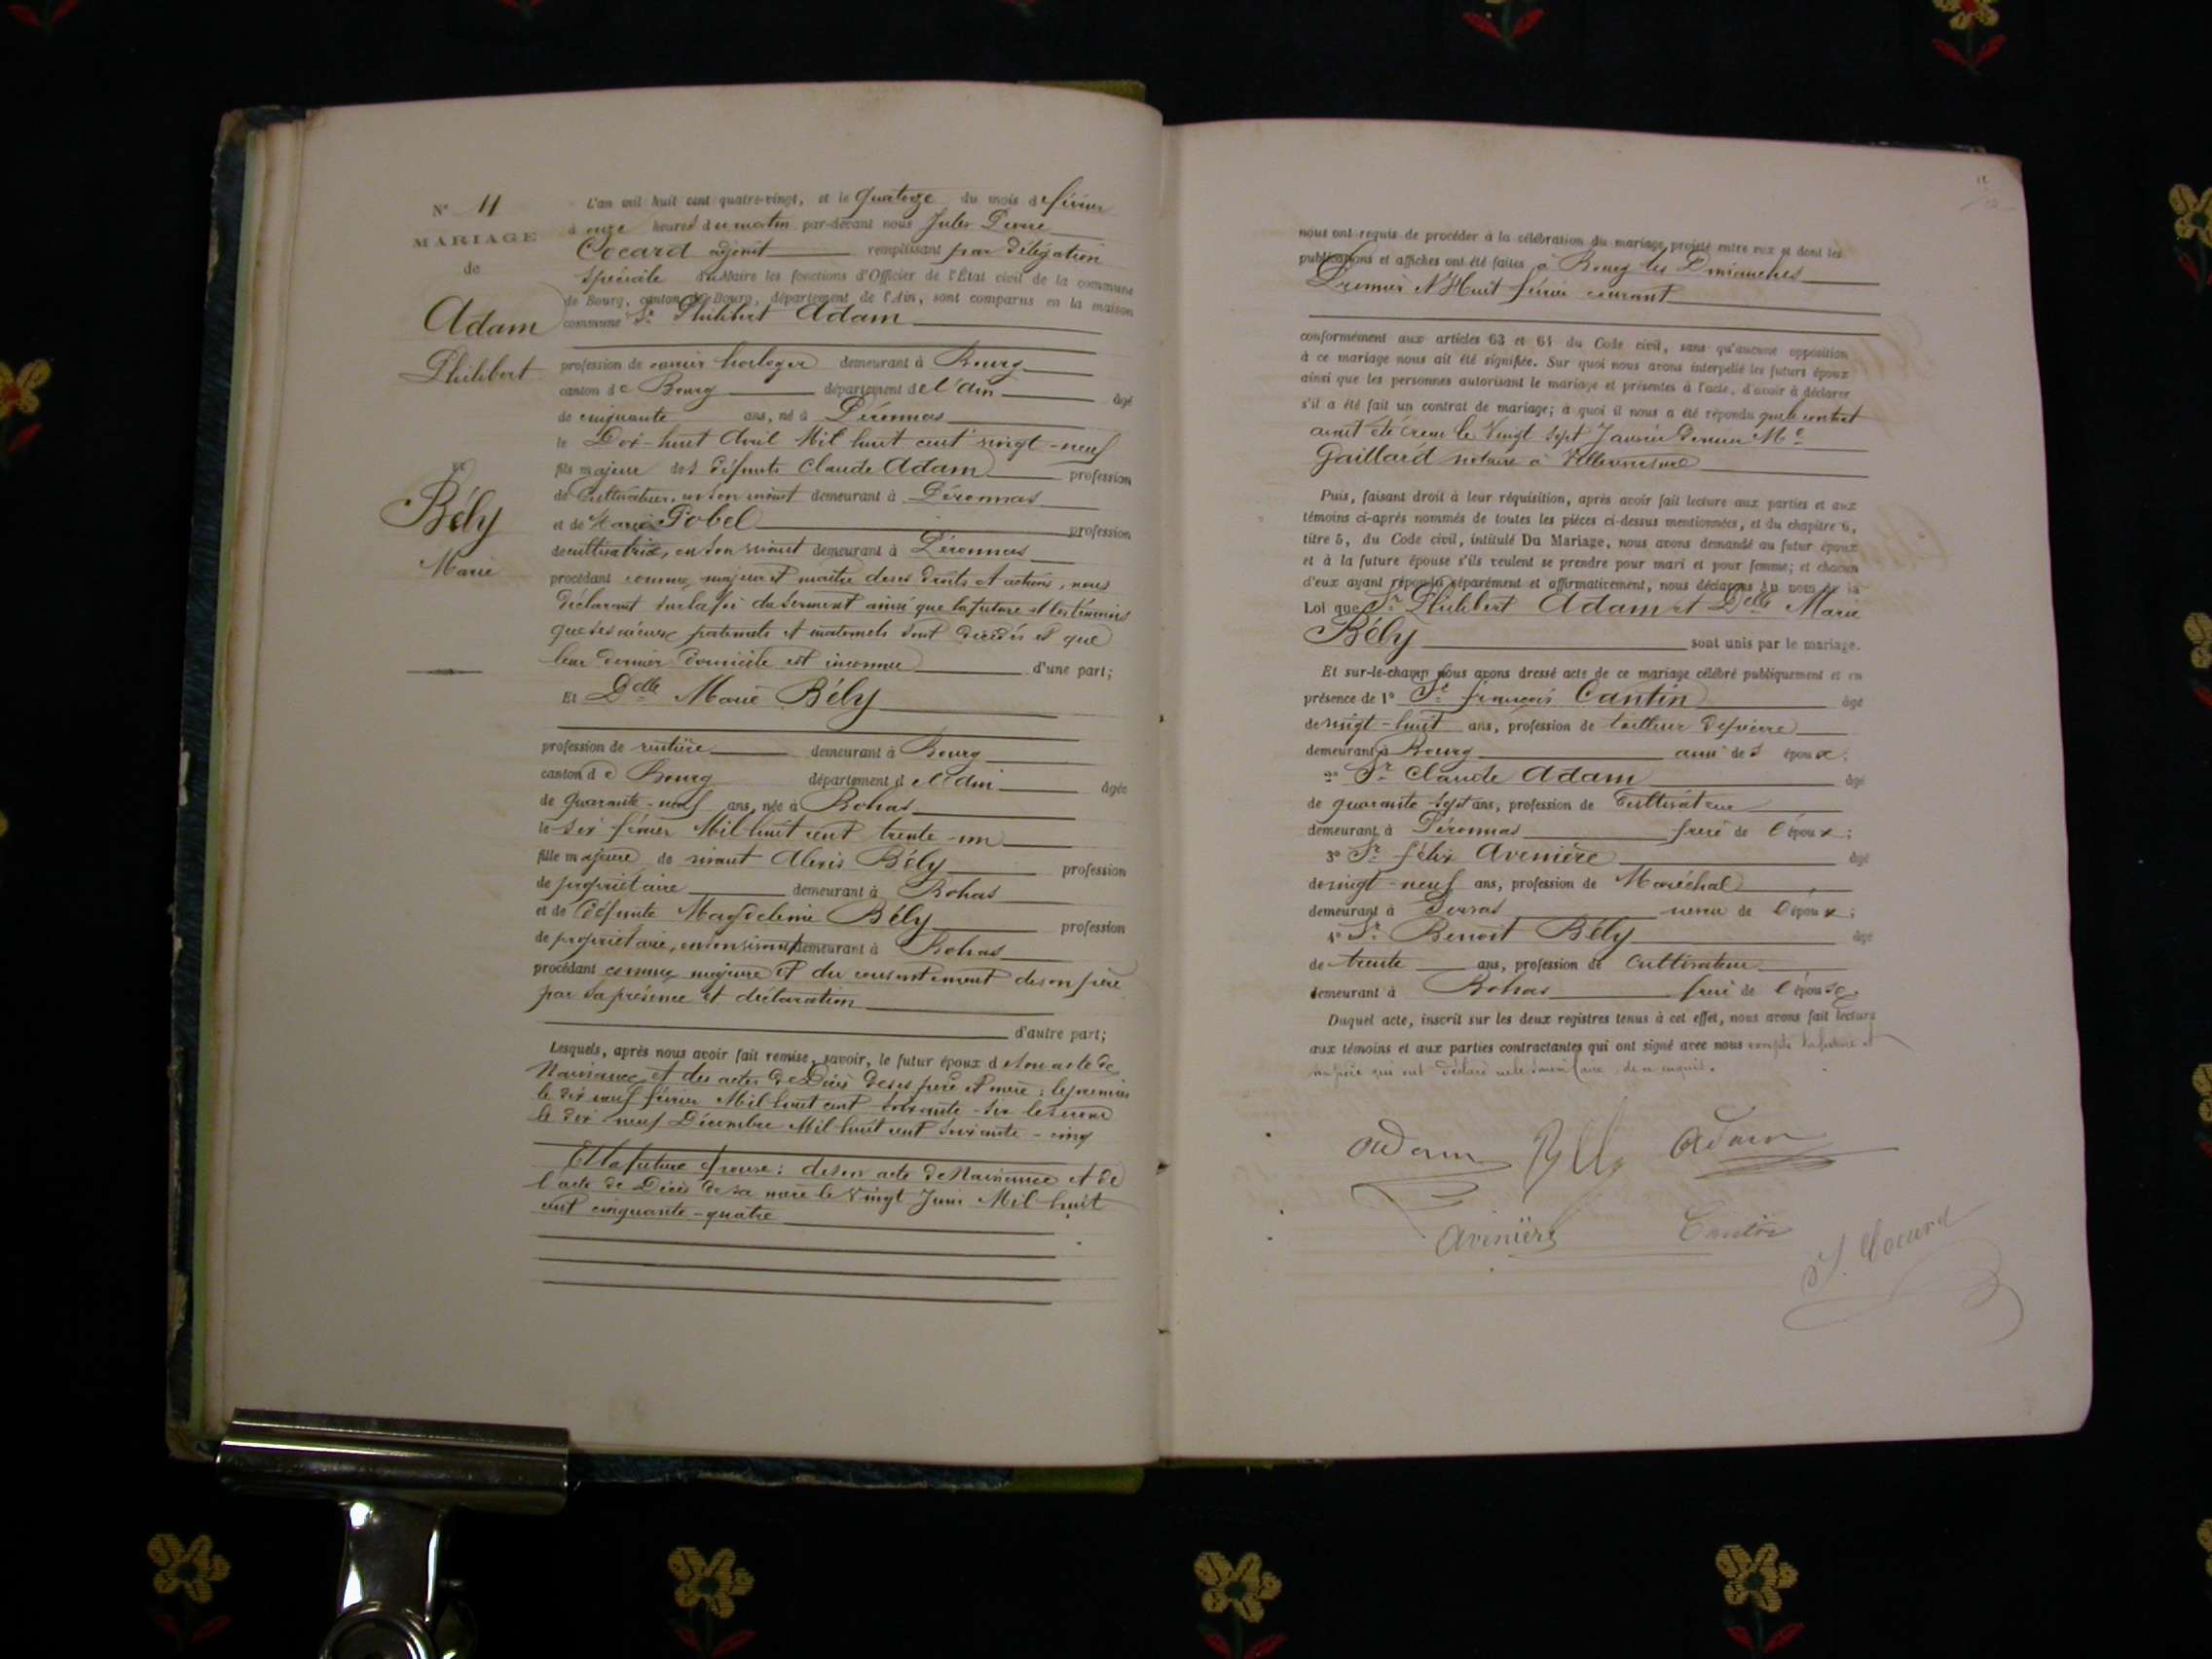 N° 11
MARIAGE
de
Adam
Philibert
et
Bély
Marie
L'an mil huit cent quatre-vingt, et le Quatorze du mois de février
à onze heures du matin par-devant nous Jules Pierre
Cocard adjoint remplissant par délégation
spéciale du Maire les fonctions d'Officier de l'État civil de la commune
de Bourg, canton de Bourg, département de l'Ain, sont comparus en la maison
commune Sr Philibert Adam
profession de ouvrier horloger demeurant à Bourg
canton de Bourg département de l'Ain âgé
de cinquante ans, né à Péronnas
le Dix-huit Avril Mil huit cent vingt-neuf
fils majeur des défunts Claude Adam profession
de Cultivateur, en son vivant demeurant à Péronnas
et de Marie Pobel profession
de cultivatrice, en son vivant demeurant à Péronnas
procédant comme majeur et maître de ses droits et actions, nous
déclarant sur la foi du serment ainsi que la future et les témoins
que ses aïeux paternels et maternels sont décédés et que
leur dernier domicile est inconnu d'une part;
Et Delle Marie Bély
profession de rentière demeurant à Bourg
canton de Bourg département de l'Ain âgée
de Quarante-neuf ans, née à Bohas
le six février Mil huit cent trente-un
fille majeure de vivant Alexis Bély profession
de propriétaire demeurant à Bohas
et de défunte Magdeleine Bély profession
de propriétaire, en son vivant demeurant à Bohas
procédant comme majeure et du consentement de son père
par sa présence et déclaration
d'autre part;
Lesquels, après nous avoir fait remise, savoir, le futur époux de son acte de
Naissance et des actes de Décès de ses père et mère: le premier
le dix neuf février Mil huit cent soixante-six le second
le dix neuf Décembre Mil huit cent soixante-cinq
Et la future épouse: de son acte de Naissance et de
l'acte de Décès de sa mère le Vingt Juin Mil huit
cent cinquante-quatre
nous ont requis de procéder à la célébration du mariage projeté entre eux et dont les
publications et affiches ont été faites à Bourg les Dimanches
Premier & Huit février courant
conformément aux articles 63 et 64 du Code civil, sans qu'aucune opposition
à ce mariage nous ait été signifiée. Sur quoi nous avons interpellé les futurs époux
ainsi que les personnes autorisant le mariage et présentes à l'acte, d'avoir à déclarer
s'il a été fait un contrat de mariage; à quoi il nous a été répondu que le contrat
avait été reçu le Vingt Sept Janvier dernier Me
Gaillard notaire à Villereversure
Puis, faisant droit à leur réquisition, après avoir fait lecture aux parties et aux
témoins ci-après nommés de toutes les pièces ci-dessus mentionnées, et du chapitre 6,
titre 5, du Code civil, intitulé Du Mariage, nous avons demandé au futur époux
et à la future épouse s'ils veulent se prendre pour mari et pour femme; et chacun
d'eux ayant répondu séparément et affirmativement, nous déclarons au nom de la
Loi que Sr Philibert Adam et Delle Marie
Bély sont unis par le mariage.
Et sur-le-champ nous avons dressé acte de ce mariage célébré publiquement et en
présence de 1° Sr françois Cantin âgé
de vingt-huit ans, profession de tailleur de pierre
demeurant à Bourg ami des époux;
2° Sr Claude Adam âgé
de quarante-sept ans, profession de Cultivateur
demeurant à Péronnas frère de l'époux;
3° Sr félix Avenière âgé
de vingt-neuf ans, profession de Maréchal
demeurant à neveu de l'époux;
4° Sr Benoit Bély âgé
de trente ans, profession de Cultivateur
demeurant à Bohas frère de l'épouse.
Duquel acte, inscrit sur les deux registres tenus à cet effet, nous avons fait lecture
aux témoins et aux parties contractantes qui ont signé avec nous excepté la future et
son père qui ont déclaré ne le savoir faire, de ce enquis.
Adam Bély Adam
Avenière Cantin
J. Cocard